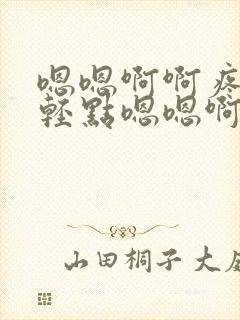 嗯嗯啊啊疼
輕點嗯嗯啊
山田桐子大